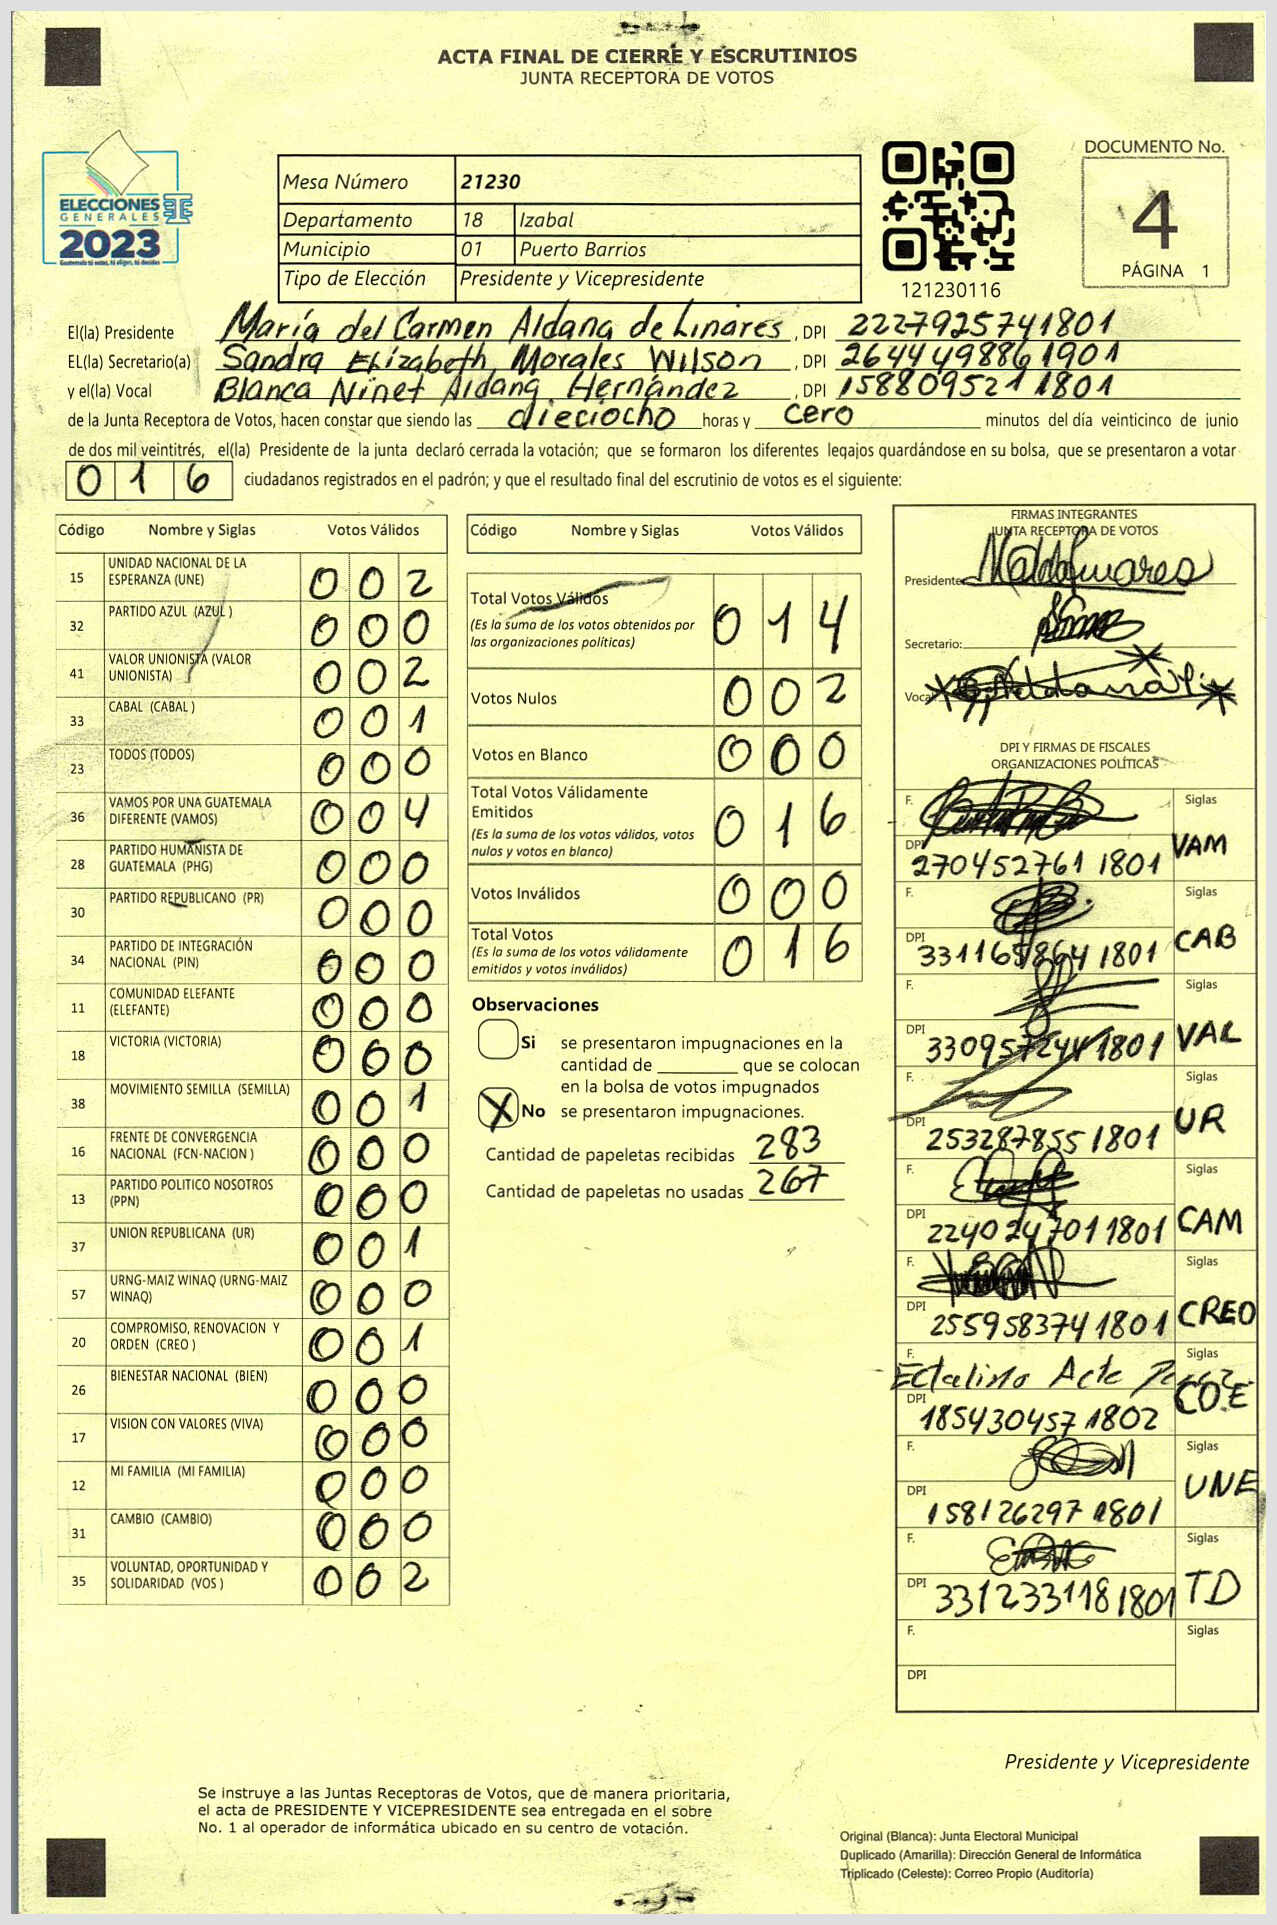 ACTA FINAL DE CIERRE Y ESCRUTINIOS
JUNTA RECEPTORA DE VOTOS
ELECCIONES
GENERALES
2023
Mesa Número 21230
Departamento 18 Izabal
Municipio 01 Puerto Barrios
Tipo de Elección Presidente y Vicepresidente
121230116
DOCUMENTO No.
4
PÁGINA 1
El(la) Presidente María del Carmen Aldana de Linares, DPI 2227925741801
EL(la) Secretario(a) Sandra Elizabeth Morales Wilson, DPI 2644498861901
y el(la) Vocal Blanca Ninet Aldana Hernández, DPI 1588095211801
de la Junta Receptora de Votos, hacen constar que siendo las dieciocho horas y cero minutos del día veinticinco de junio
de dos mil veintitrés, el(la) Presidente de la junta declaró cerrada la votación; que se formaron los diferentes legajos guardándose en su bolsa, que se presentaron a votar
016 ciudadanos registrados en el padrón; y que el resultado final del escrutinio de votos es el siguiente:
Código Nombre y Siglas Votos Válidos
15 UNIDAD NACIONAL DE LA ESPERANZA (UNE) 002
32 PARTIDO AZUL (AZUL ) 000
41 VALOR UNIONISTA (VALOR UNIONISTA) 002
33 CABAL (CABAL ) 001
23 TODOS (TODOS) 000
36 VAMOS POR UNA GUATEMALA DIFERENTE (VAMOS) 004
28 PARTIDO HUMANISTA DE GUATEMALA (PHG) 000
30 PARTIDO REPUBLICANO (PR) 000
34 PARTIDO DE INTEGRACIÓN NACIONAL (PIN) 000
11 COMUNIDAD ELEFANTE (ELEFANTE) 000
18 VICTORIA (VICTORIA) 000
38 MOVIMIENTO SEMILLA (SEMILLA) 001
16 FRENTE DE CONVERGENCIA NACIONAL (FCN-NACION ) 000
13 PARTIDO POLITICO NOSOTROS (PPN) 000
37 UNION REPUBLICANA (UR) 001
57 URNG-MAIZ WINAQ (URNG-MAIZ WINAQ) 000
20 COMPROMISO, RENOVACION Y ORDEN (CREO ) 001
26 BIENESTAR NACIONAL (BIEN) 000
17 VISION CON VALORES (VIVA) 000
12 MI FAMILIA (MI FAMILIA) 000
31 CAMBIO (CAMBIO) 000
35 VOLUNTAD, OPORTUNIDAD Y SOLIDARIDAD (VOS ) 002
Código Nombre y Siglas Votos Válidos
Total Votos Válidos 014
(Es la suma de los votos obtenidos por
las organizaciones políticas)
Votos Nulos 002
Votos en Blanco 000
Total Votos Válidamente
Emitidos 016
(Es la suma de los votos válidos, votos
nulos y votos en blanco)
Votos Inválidos 000
Total Votos 016
(Es la suma de los votos válidamente
emitidos y votos inválidos)
Observaciones
Si se presentaron impugnaciones en la
cantidad de ________ que se colocan
en la bolsa de votos impugnados
X No se presentaron impugnaciones.
Cantidad de papeletas recibidas 283
Cantidad de papeletas no usadas 267
FIRMAS INTEGRANTES
JUNTA RECEPTORA DE VOTOS
Presidente
Secretario:
Vocal
DPI Y FIRMAS DE FISCALES
ORGANIZACIONES POLÍTICAS
F. Siglas VAM
DPI 2704527611801
F. Siglas CAB
DPI 3311658641801
F. Siglas VAL
DPI 3309572441801
F. Siglas UR
DPI 2532878551801
F. Siglas CAM
DPI 2240247011801
F. Siglas CREO
DPI 2559583741801
F. Siglas
DPI 1854304571802
F. Siglas UNE
DPI 1581262971801
F. Siglas TD
DPI 3312331181801
F. Siglas
DPI
Presidente y Vicepresidente
Se instruye a las Juntas Receptoras de Votos, que de manera prioritaria,
el acta de PRESIDENTE Y VICEPRESIDENTE sea entregada en el sobre
No. 1 al operador de informática ubicado en su centro de votación.
Original (Blanca): Junta Electoral Municipal
Duplicado (Amarilla): Dirección General de Informática
Triplicado (Celeste): Correo Propio (Auditoría)